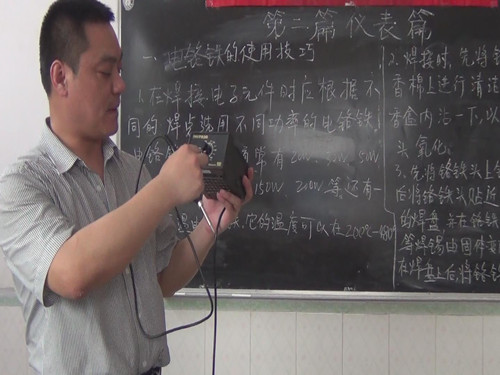 第二篇仪表篇
一、电烙铁的使用技巧
1.在焊接电子元件时应根据不
同的焊点选用不同功率的电烙铁,
常有20W、30W、50W
150W 200W等,还有一
它的温度可以在200℃-480
2.焊接时,先将
香棉上进行清洁
香盒内沾一下,以
头氧化。
3.先将烙铁头上
后将烙铁头贴近
的焊盘,并在烙铁
等焊锡由固体
在焊盘上后,将烙铁